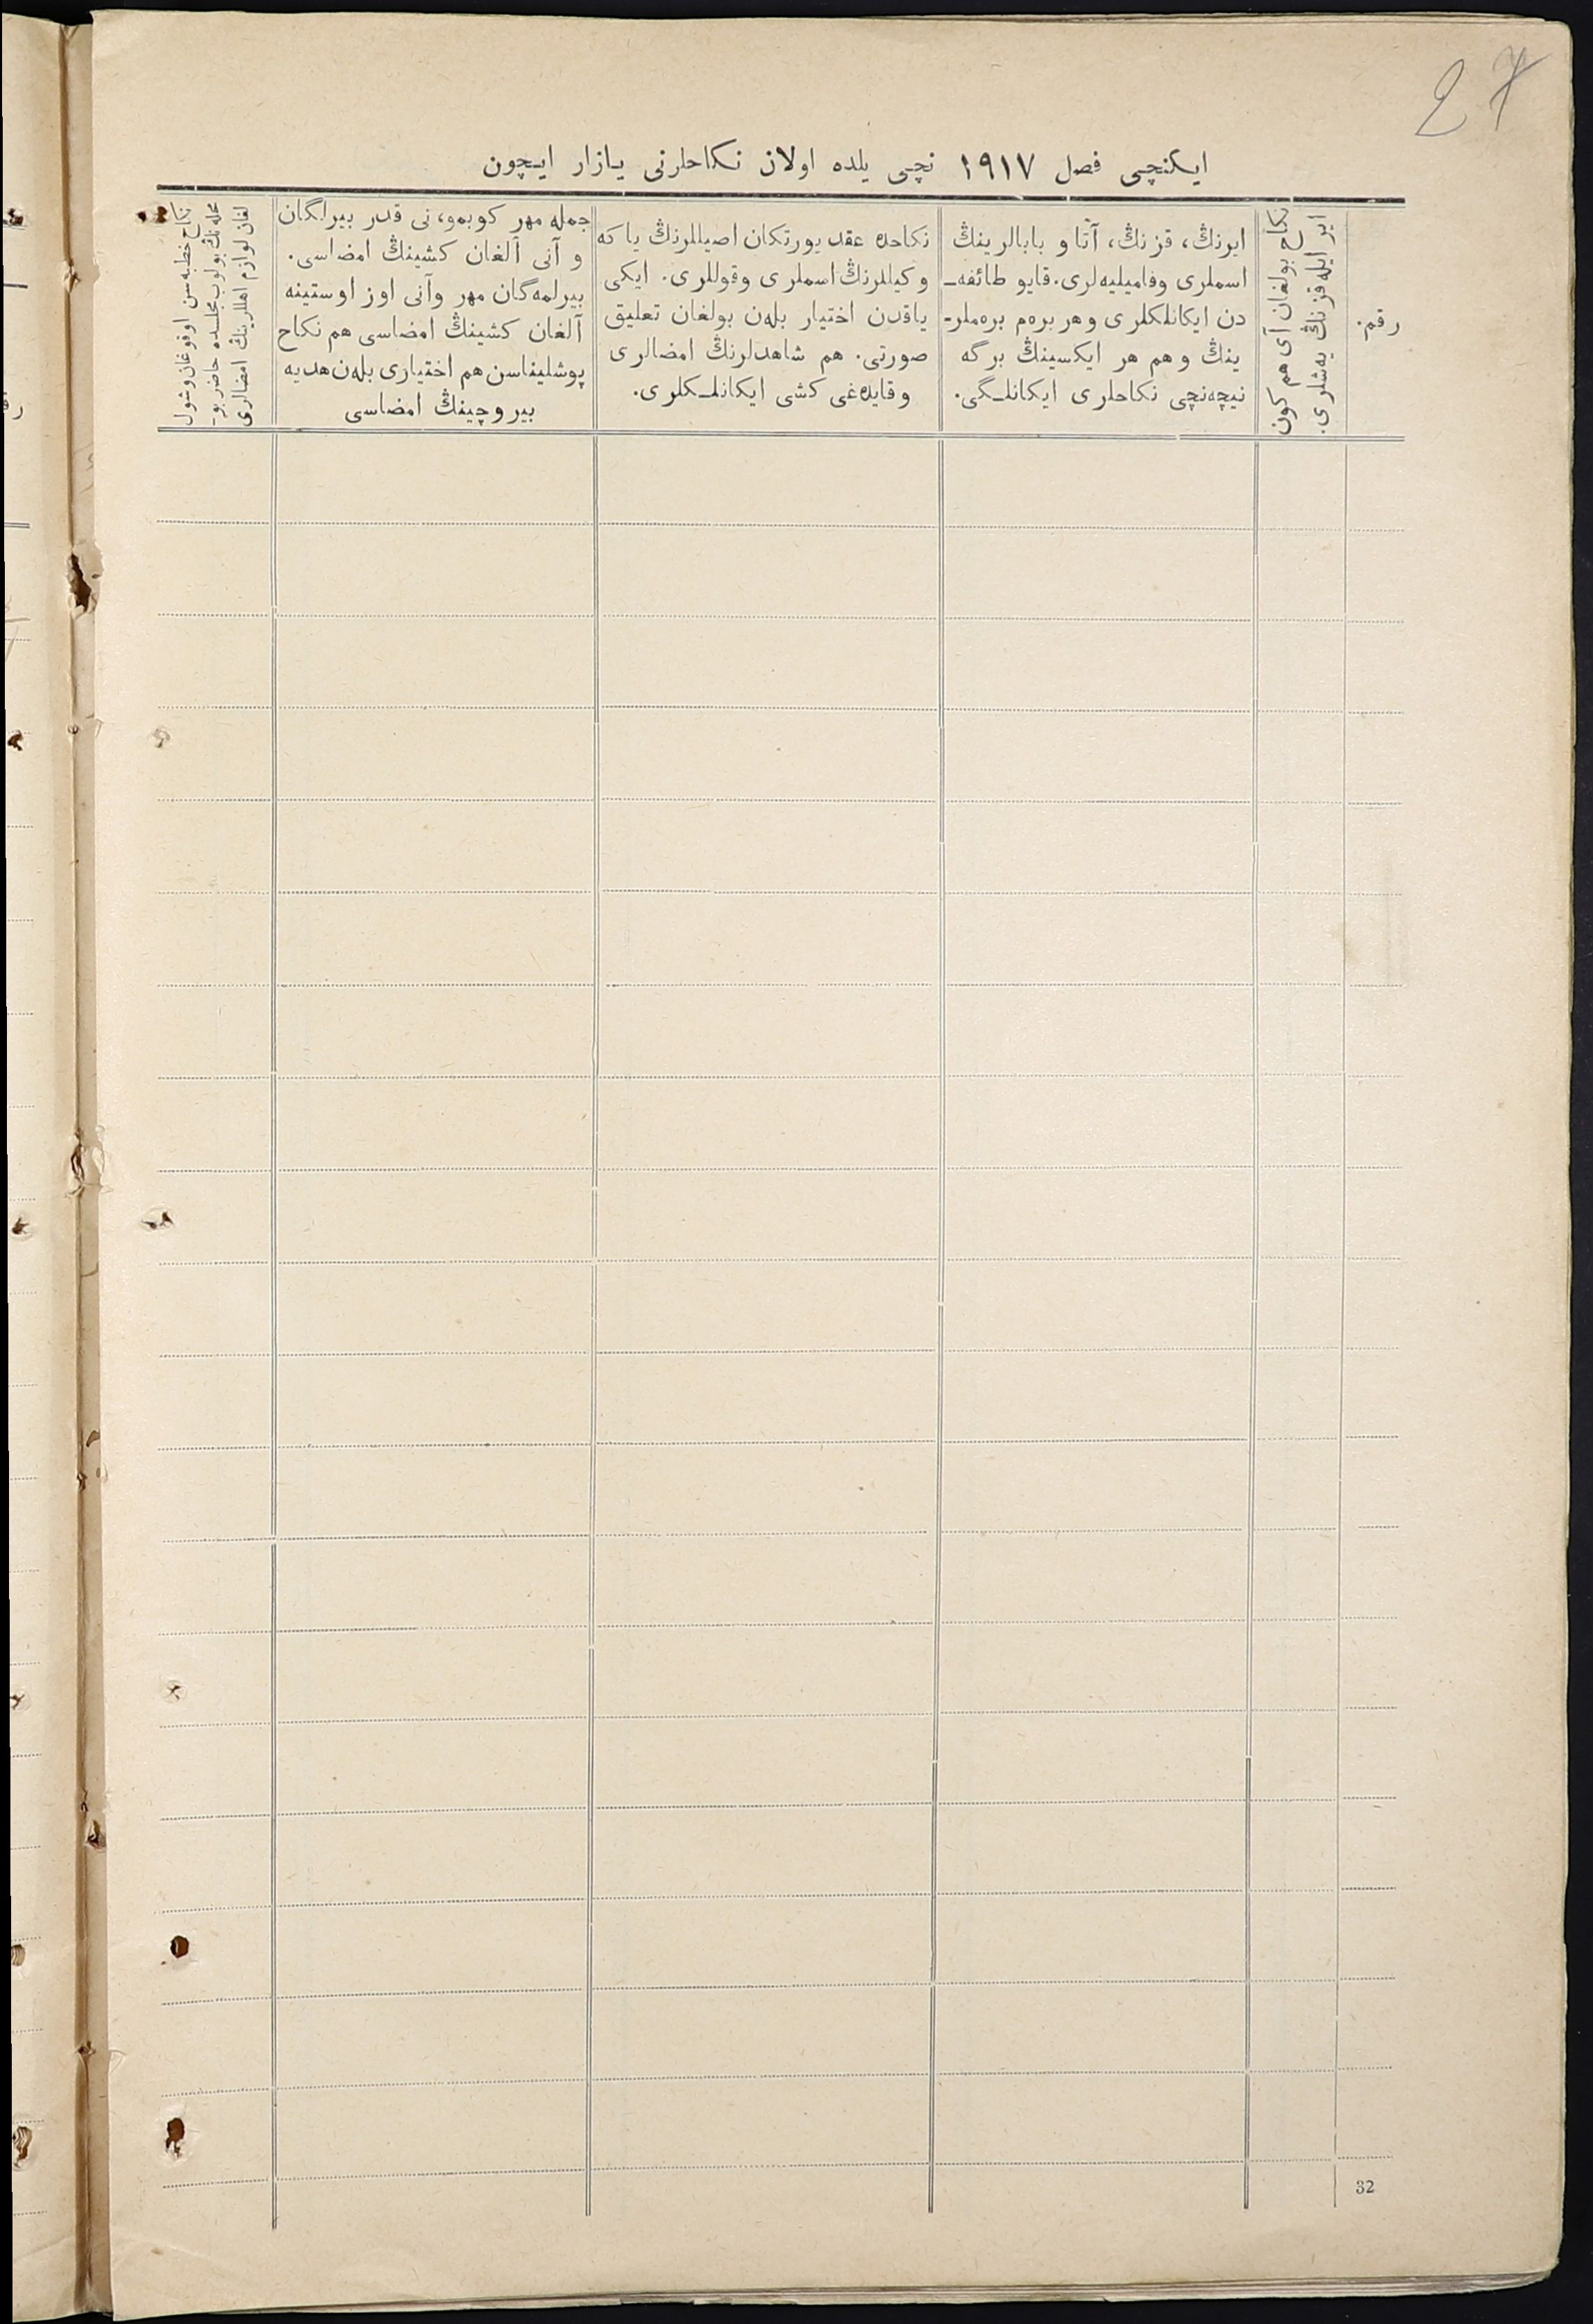 27
ایکنچی فصل ١٩١٧ نچی یلده اولان نکاحلرنی یازار ایچون
رقم.
ایر ایله قزنڭ یه‌شلری.
نکاح بولغان آی هم کون
ایرنڭ، قزنڭ، آتا و بابالرینڭ
اسملری وفامیلیه‌لری. قایو طائفه‌ـ
دن ایکانلکلری وهر بره‌م بره‌ملر-
ینڭ وهم هر ایکسینڭ برگه
نیچه‌نچی نکاحلری ایکانلـگی.
نکاحده عقد یورتکان اصیللرنڭ یا که
وکیللرنڭ اسملری وقوللری. ایکی
یاقدن اختیار بله‌ن بولغان تعلیق
صورتی. هم شاهدلرنڭ امضالری
وقایده‌غی کشی ایکانلـکلری.
جمله مهر کوبمو، نی قدر بیرلگان
و آنی آلغان کشینڭ امضاسی.
بیرلمه‌گان مهر وآنی اوز اوستینه
آلغان کشینڭ امضاسی هم نکاح
پوشلیناسن هم اختیاری بله‌ن هدیه
بیروچینڭ امضاسی
نکاح خطبه‌سن اوقوغان وشول
محله‌نڭ بولوب مجلسده حاضر بو-
لغان لوازم اهللرینڭ امضالری
32